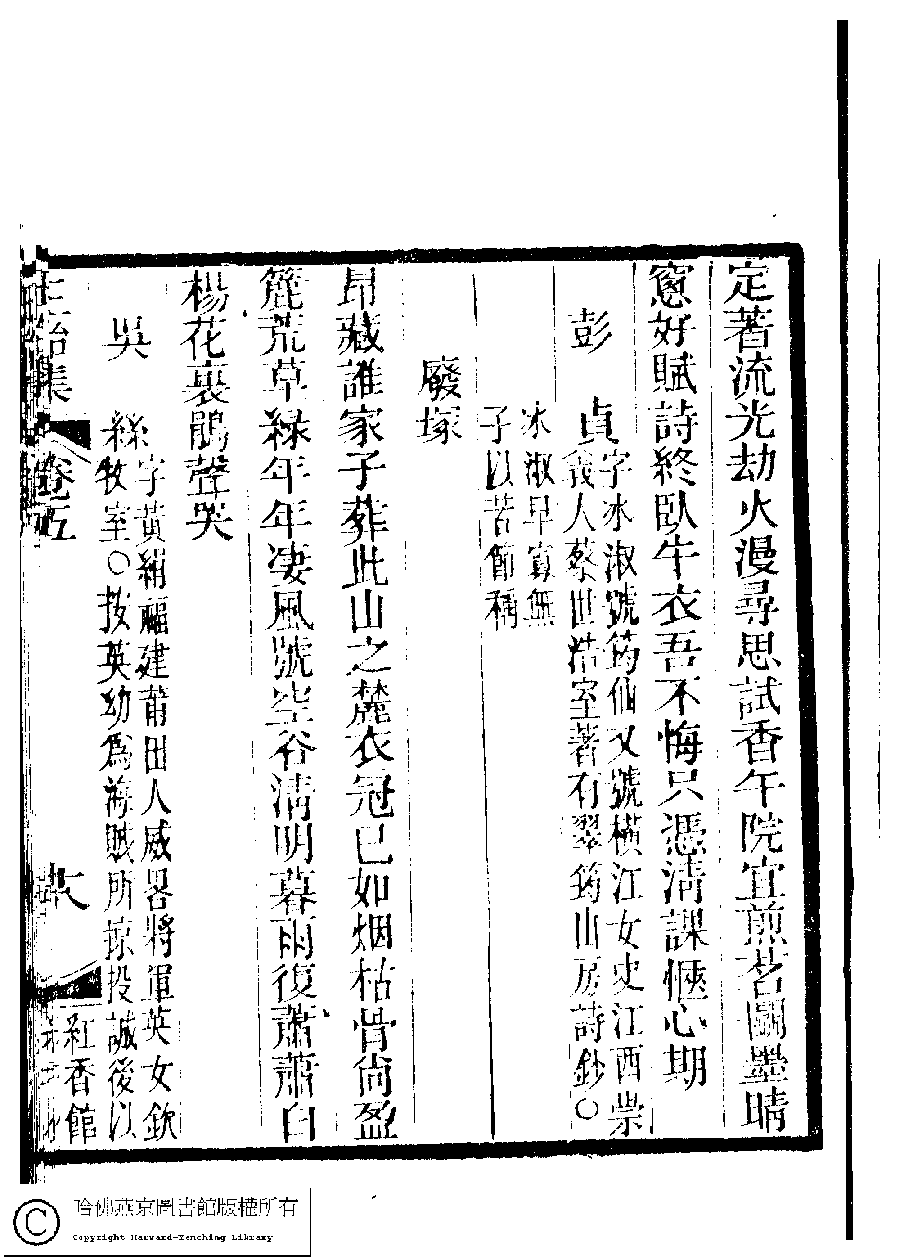 定著流光劫火漫尋思試香午院宜煎茗鬬墨晴
窻好賦詩終臥牛衣吾不悔只憑淸課愜心期
彭　貞字冰淑號筠仙又號橫江女史江西崇
義人蔡世浩室著有翠筠山房詩鈔○
冰淑早寡無
子以苦節稱
廢塚
昂藏誰家子葬此山之麓衣冠已如烟枯骨尙盈
簏荒草綠年年凄風號空谷淸明暮雨復蕭蕭白
楊花裏鵑聲哭
吳　絲字黃絹福建莆田人威畧將軍英女欽
牧室○按英幼爲海賊所掠投誠後以
集
卷五
紅香館
哈佛燕京圖書館版權所有
Copyright Harvard-Yenching Library